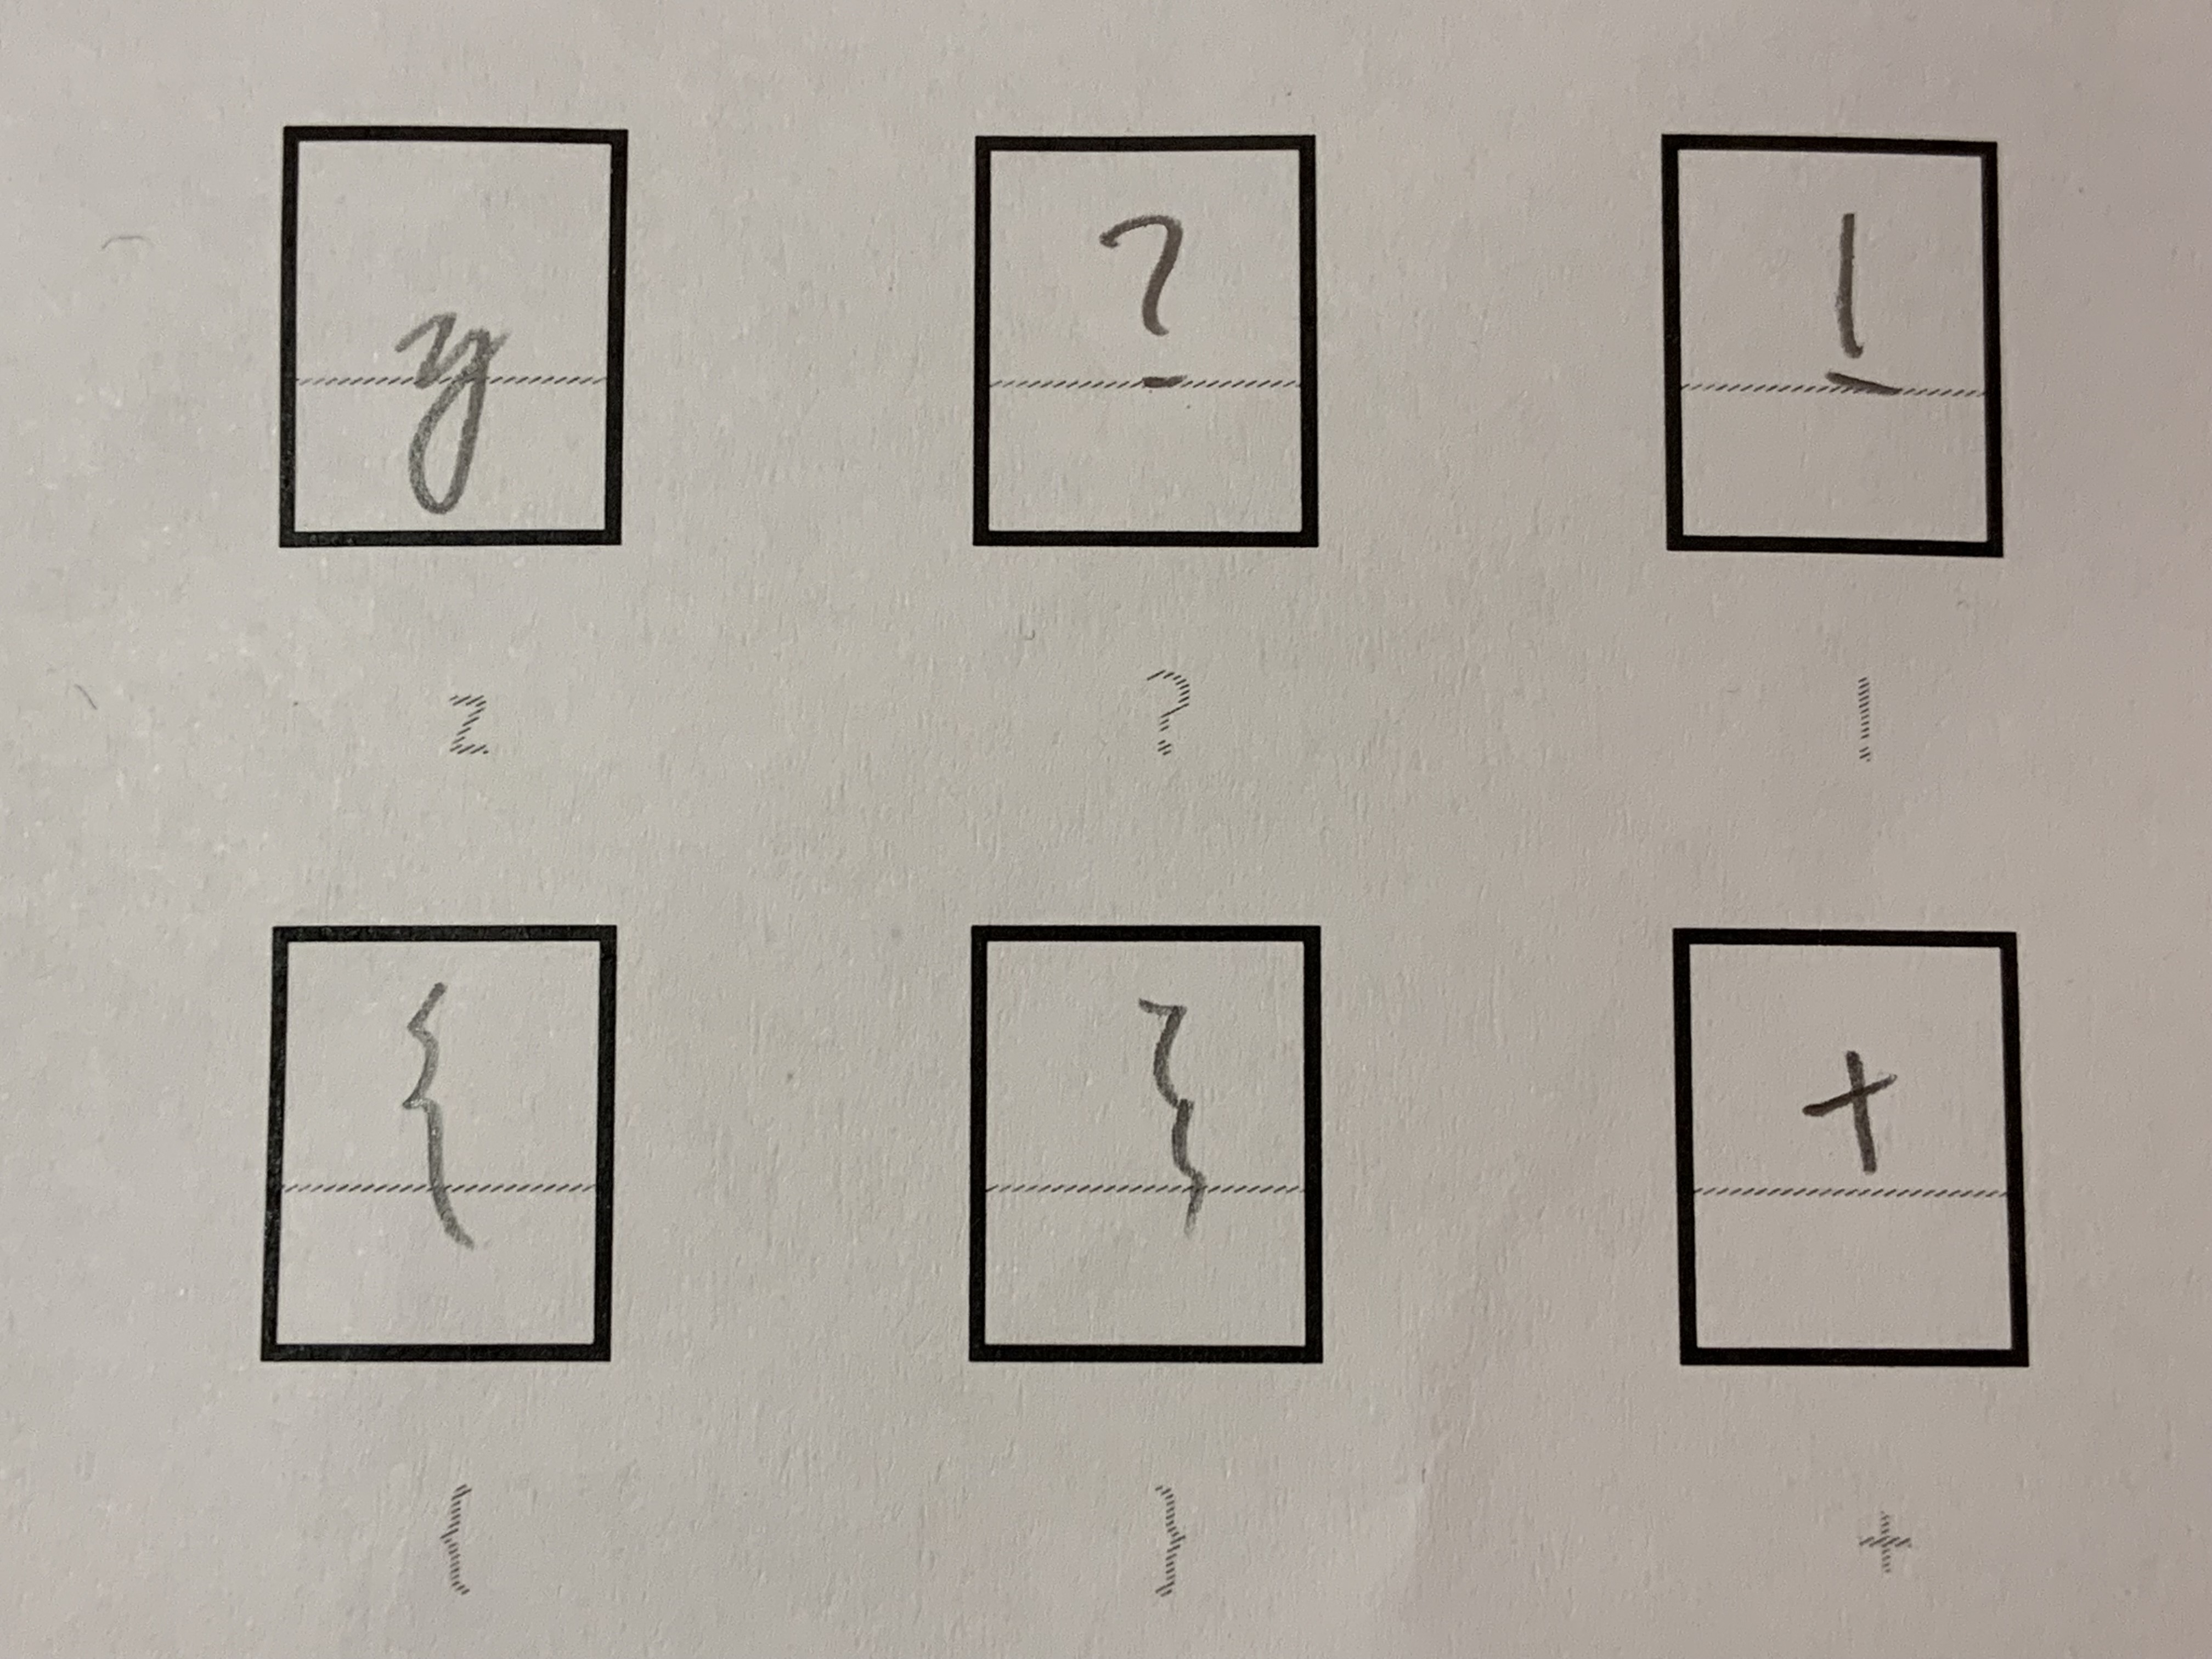 y ? !
z ? !
{ } +
{ } +